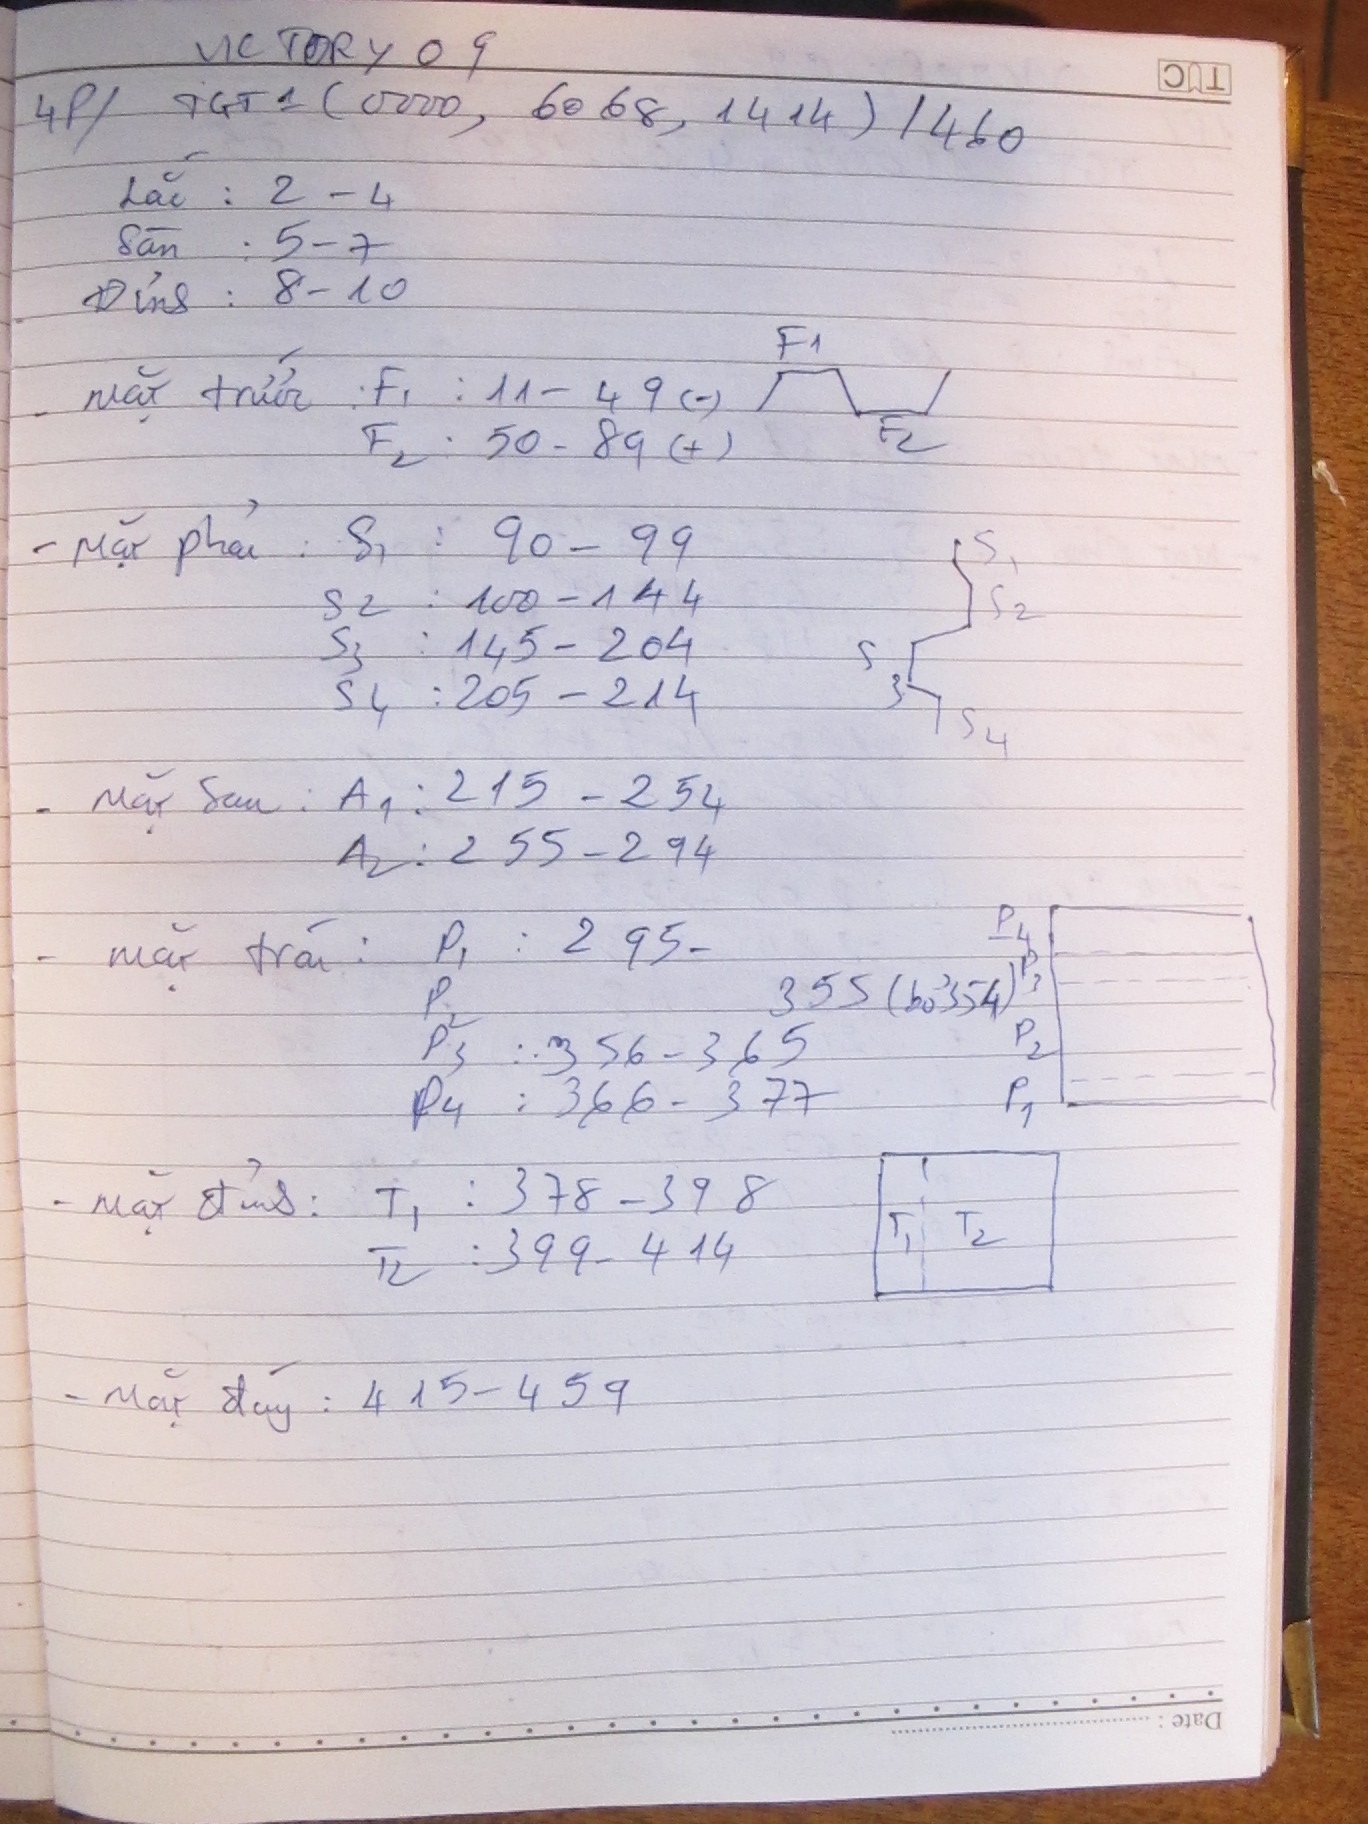 VICTORY 09
TUC
4P/ TGT1 (0000, 6068, 1414) / 460
Lắc : 2 - 4
Sàn : 5 - 7
Đỉnh : 8 - 10
F1
- Mặt trước : F1 : 11 - 49 (-)
F2
F2 : 50 - 89 (+)
- Mặt phải : S1 : 90 - 99
S1
S2 : 100 - 144
S2
S3 : 145 - 204
S3
S4 : 205 - 214
S4
- Mặt sau : A1 : 215 - 254
A2 : 255 - 294
P4
- Mặt trái : P1 : 295 -
P3
P2 355 (bỏ 354)
P3 : 356 - 365
P2
P4 : 366 - 377
P1
- Mặt đỉnh : T1 : 378 - 398
T1 T2
T2 : 399 - 414
- Mặt đáy : 415 - 459
Date :